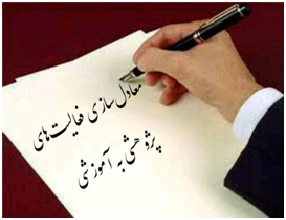 معادل سازی فعالیت‌های
پژوهشی به آموزشی